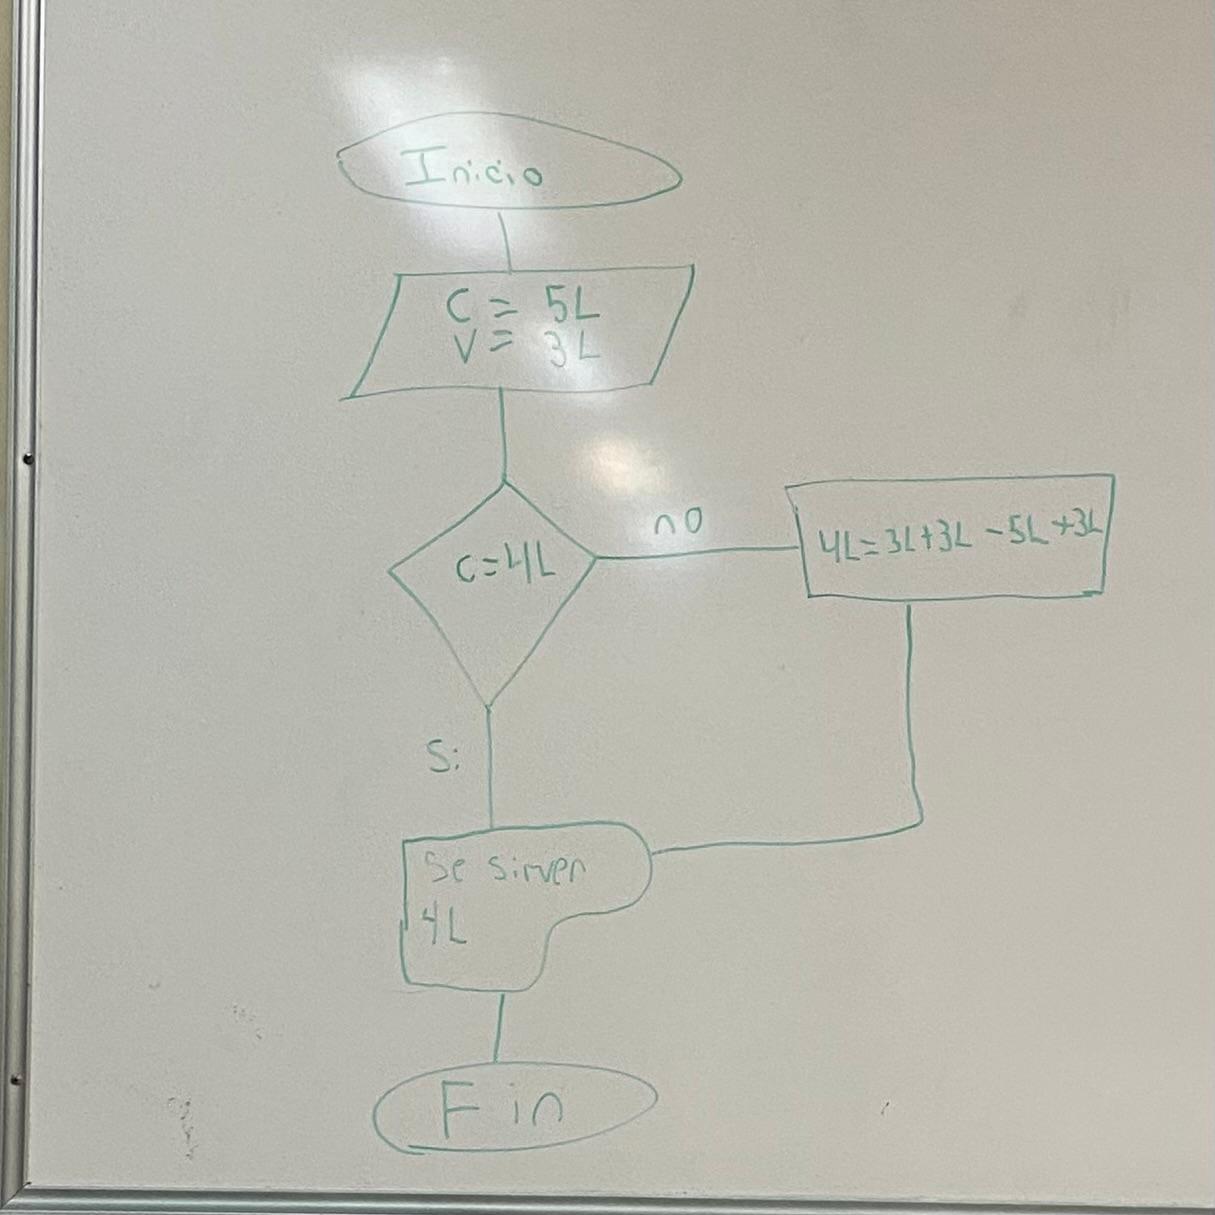 Inicio
C = 5L
V = 3L
C=4L
no
4L=3L+3L-5L+3L
Si
Se sirven
4L
Fin